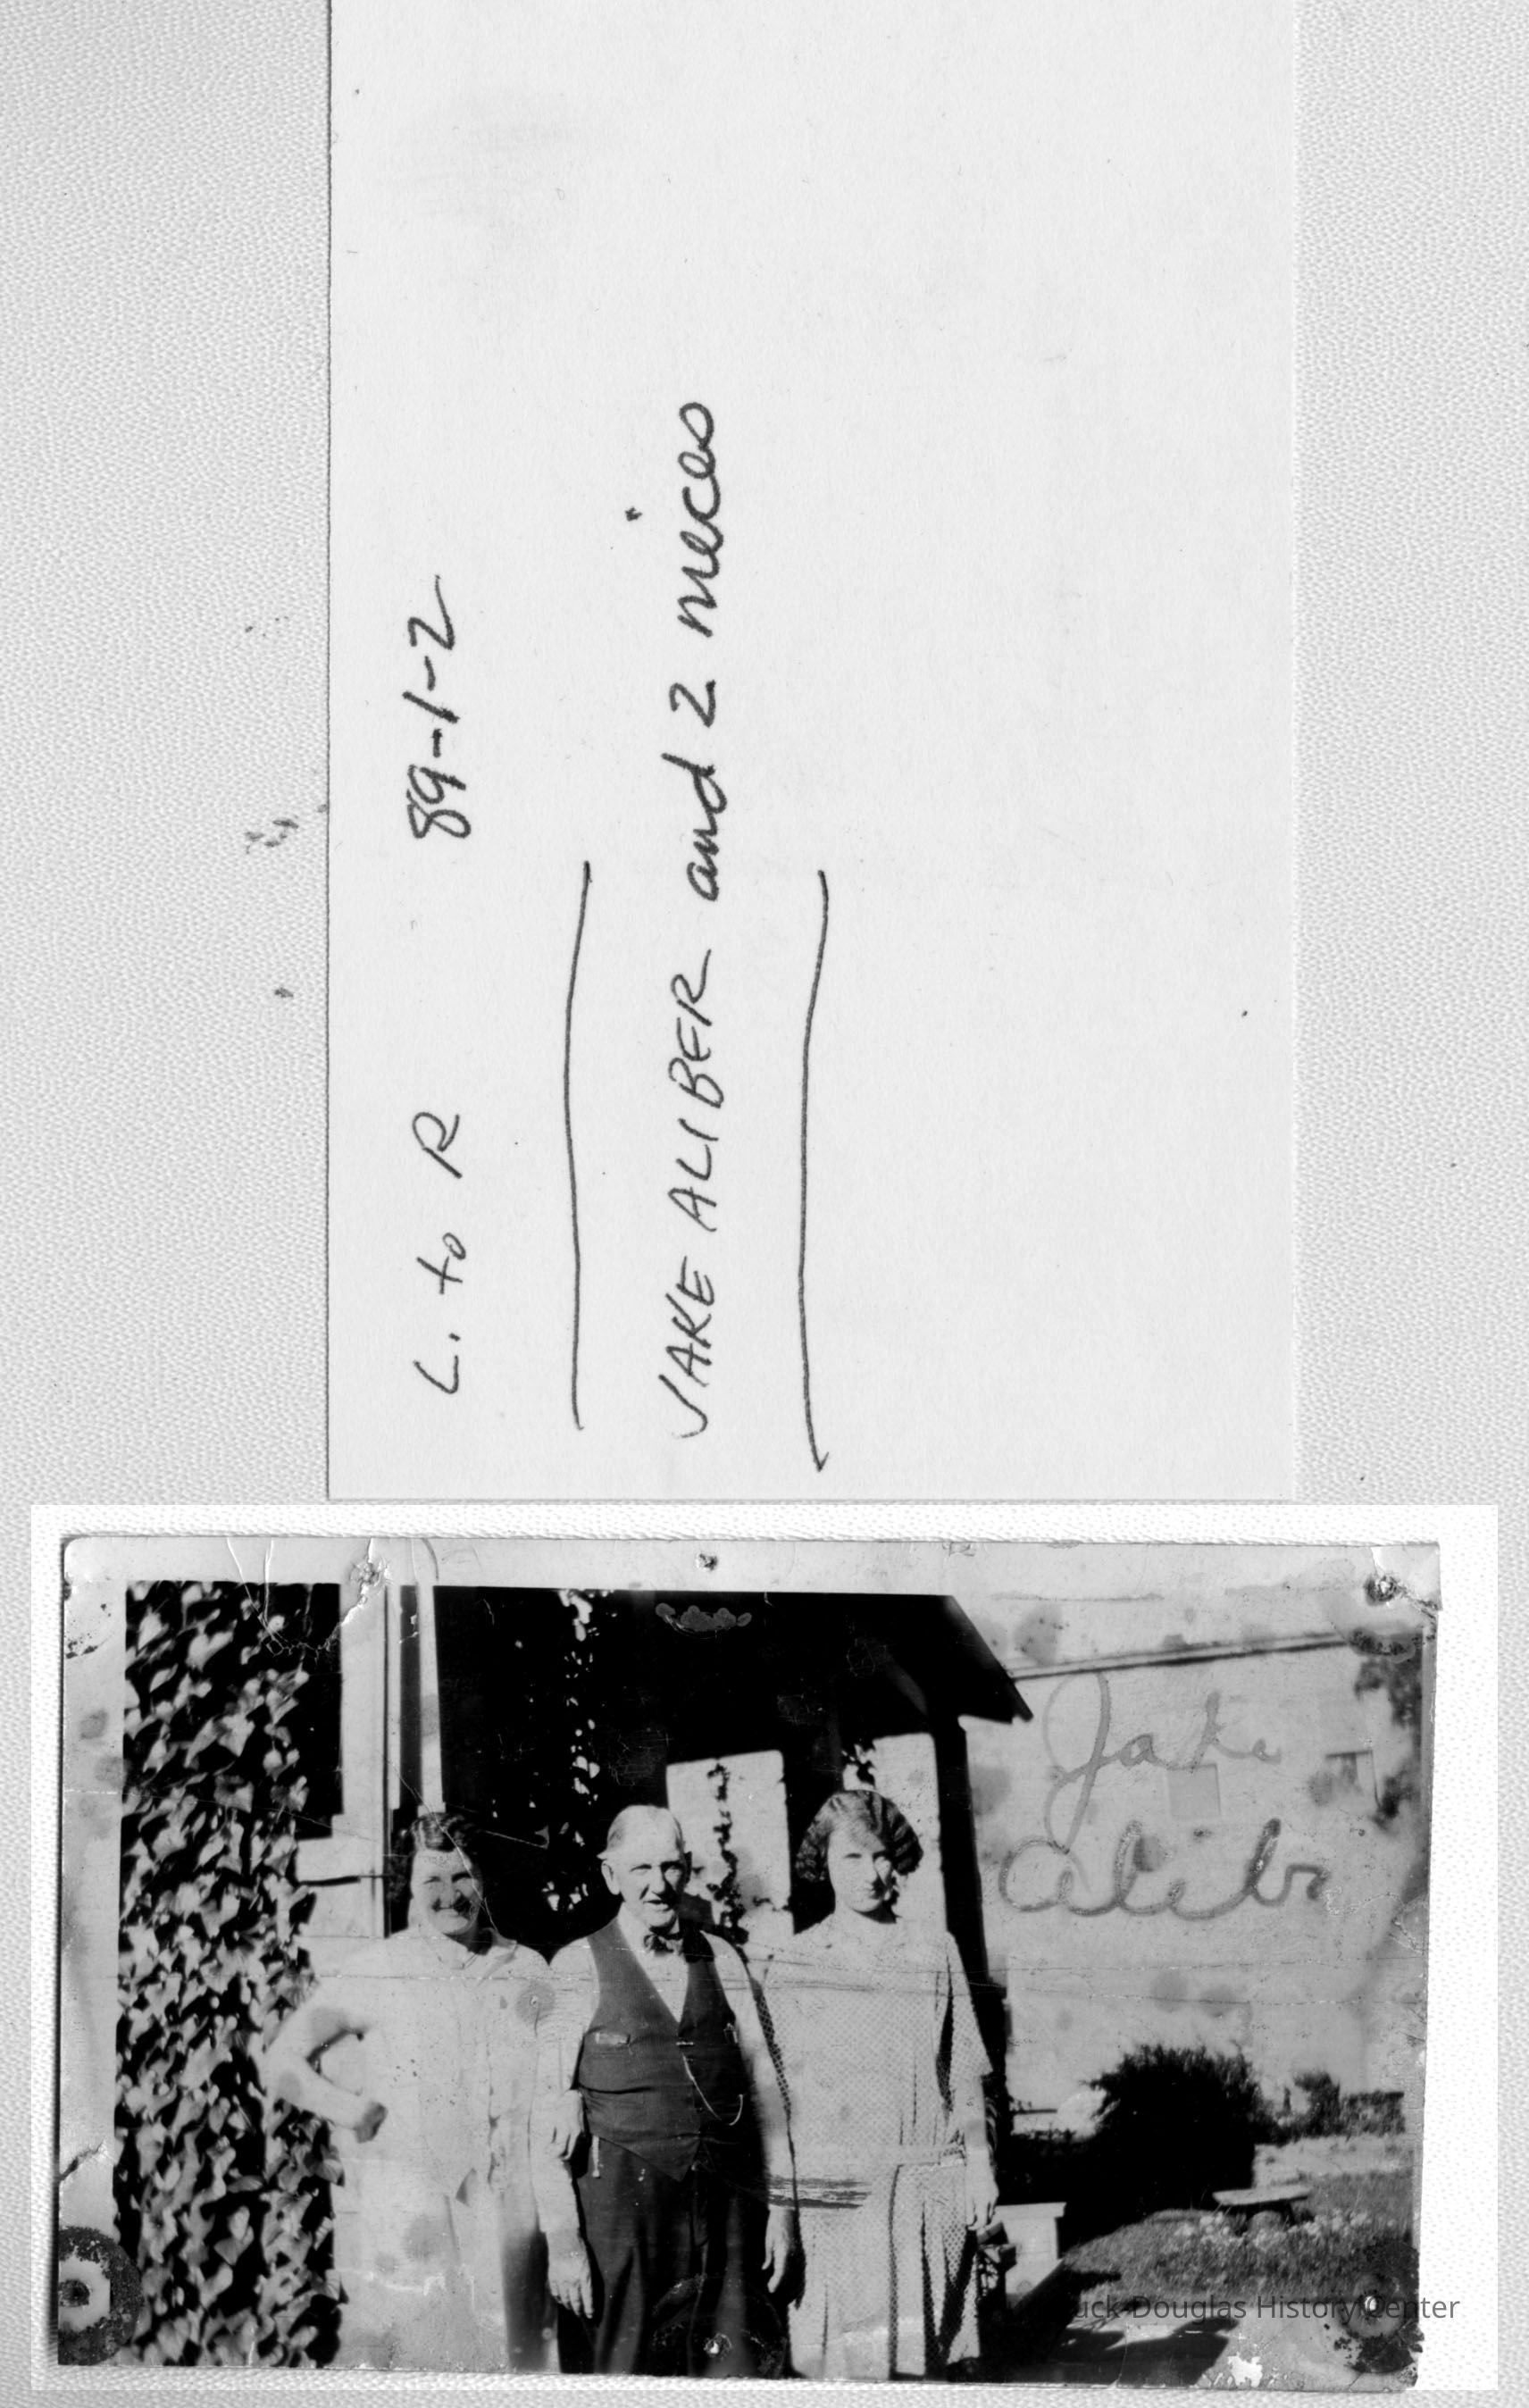 L. to R 89-1-2
JAKE ALIBER and 2 nieces
Jake
Alibr
uck-Douglas History Center